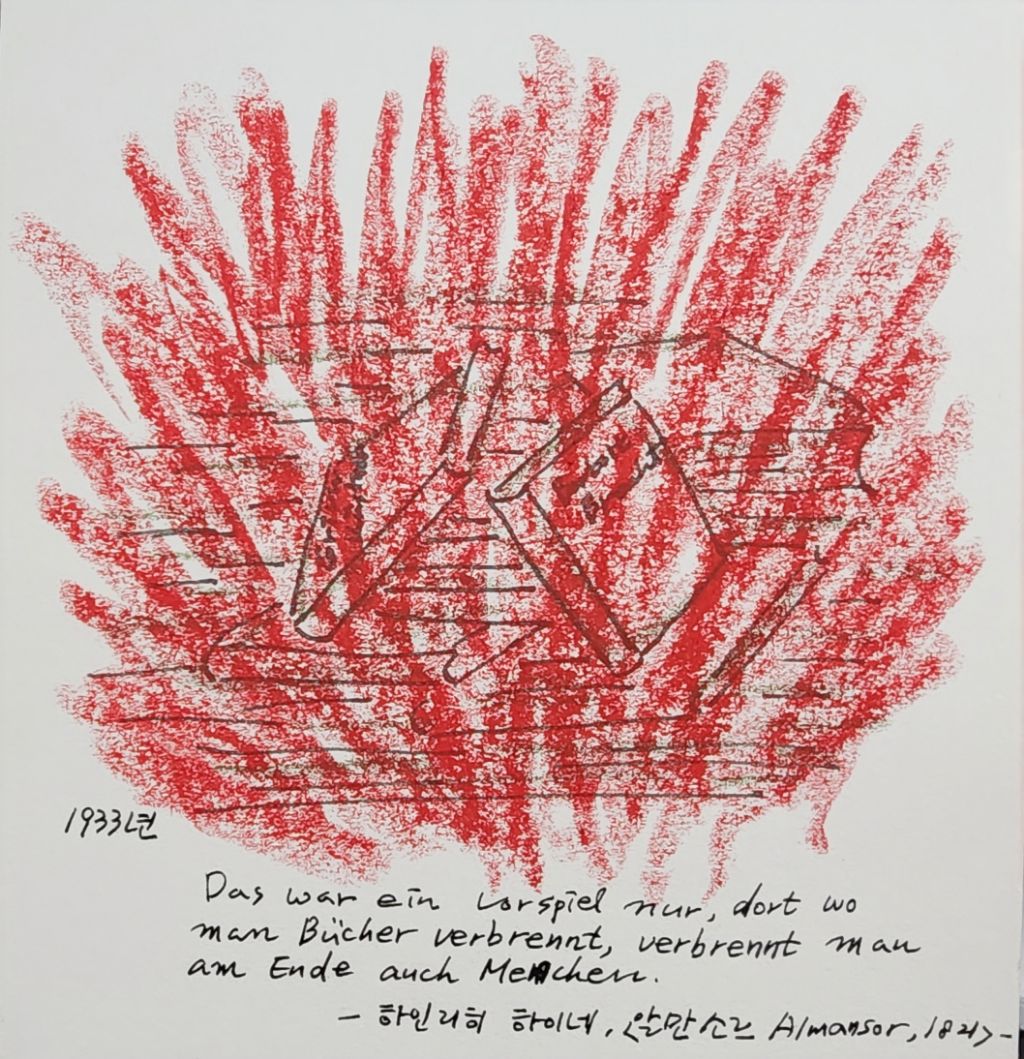 1933년
Das war ein Vorspiel nur, dort wo
man Bücher verbrennt, verbrennt man
am Ende auch Menchen.
– 하인리히 하이네, <알만소르 Almansor, 1821> –